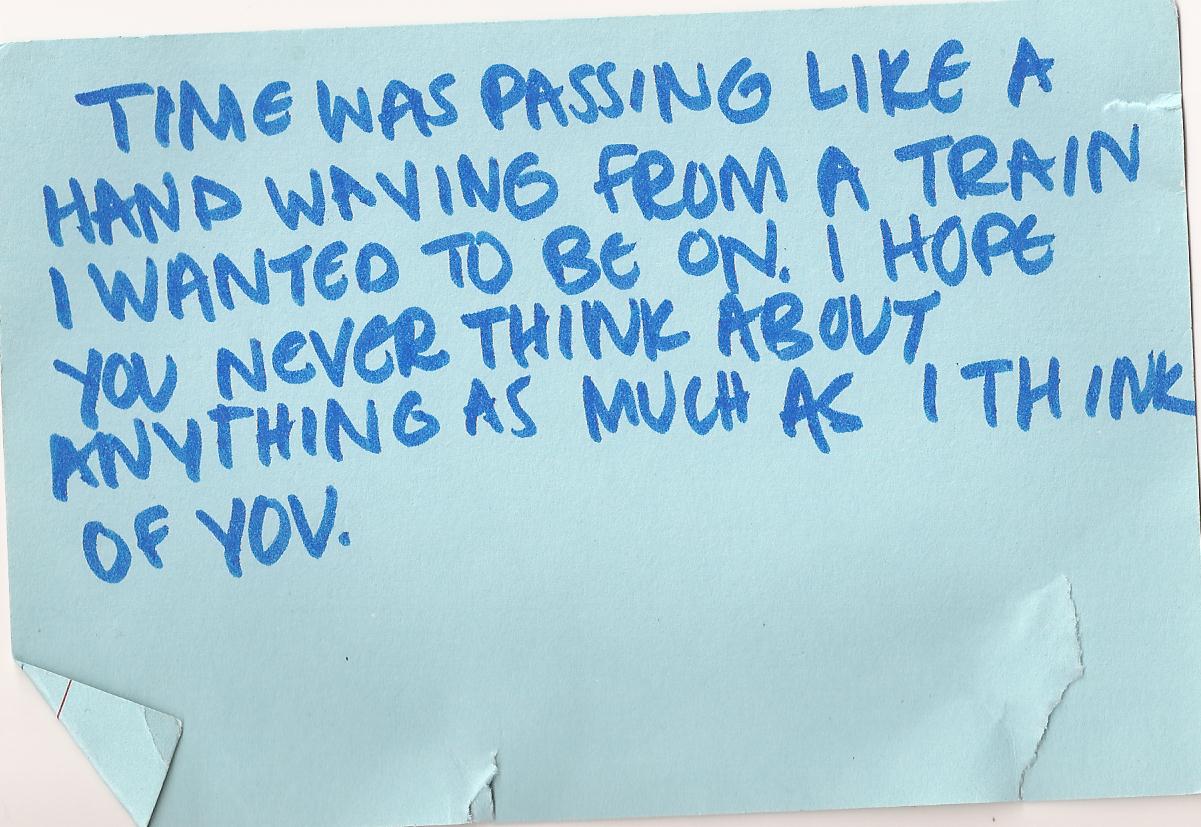 TIME WAS PASSING LIKE A
HAND WAVING FROM A TRAIN
I WANTED TO BE ON. I HOPE
YOU NEVER THINK ABOUT
ANYTHING AS MUCH AS I THINK
OF YOU.